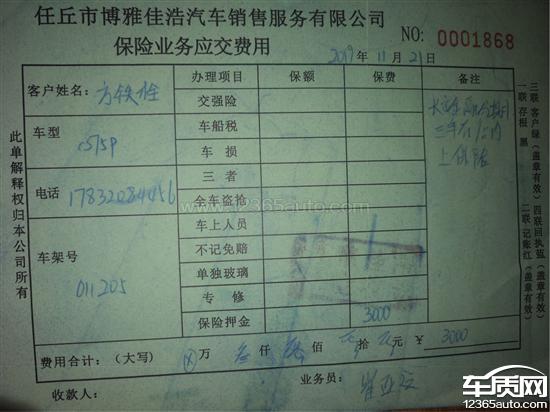 任丘市博雅佳浩汽车销售服务有限公司
保险业务应交费用
NO: 0001868
2019年11月21日
客户姓名: 方铁栓
办理项目 保额 保费 备注
交强险
车船税
车型
车损
三者
电话 17832084456
全车盗抢
车上人员
车架号 011205
不记免赔
单独玻璃
专修
保险押金 3000
三年
上保险
费用合计: (大写) 万 叁仟 佰 拾 元 ¥ 3000
收款人:
业务员:
此单解释权归本公司所有
一联 存根 黑
二联 记账红(盖章有效)
三联 客户绿(盖章有效)
四联回执蓝(盖章有效)
www.12365auto.com
车质网
12365auto.com